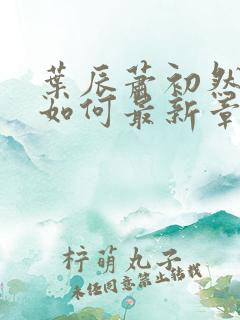 葉辰蕭初然
如何最新章
梓萌丸子
未經同意禁止轉載